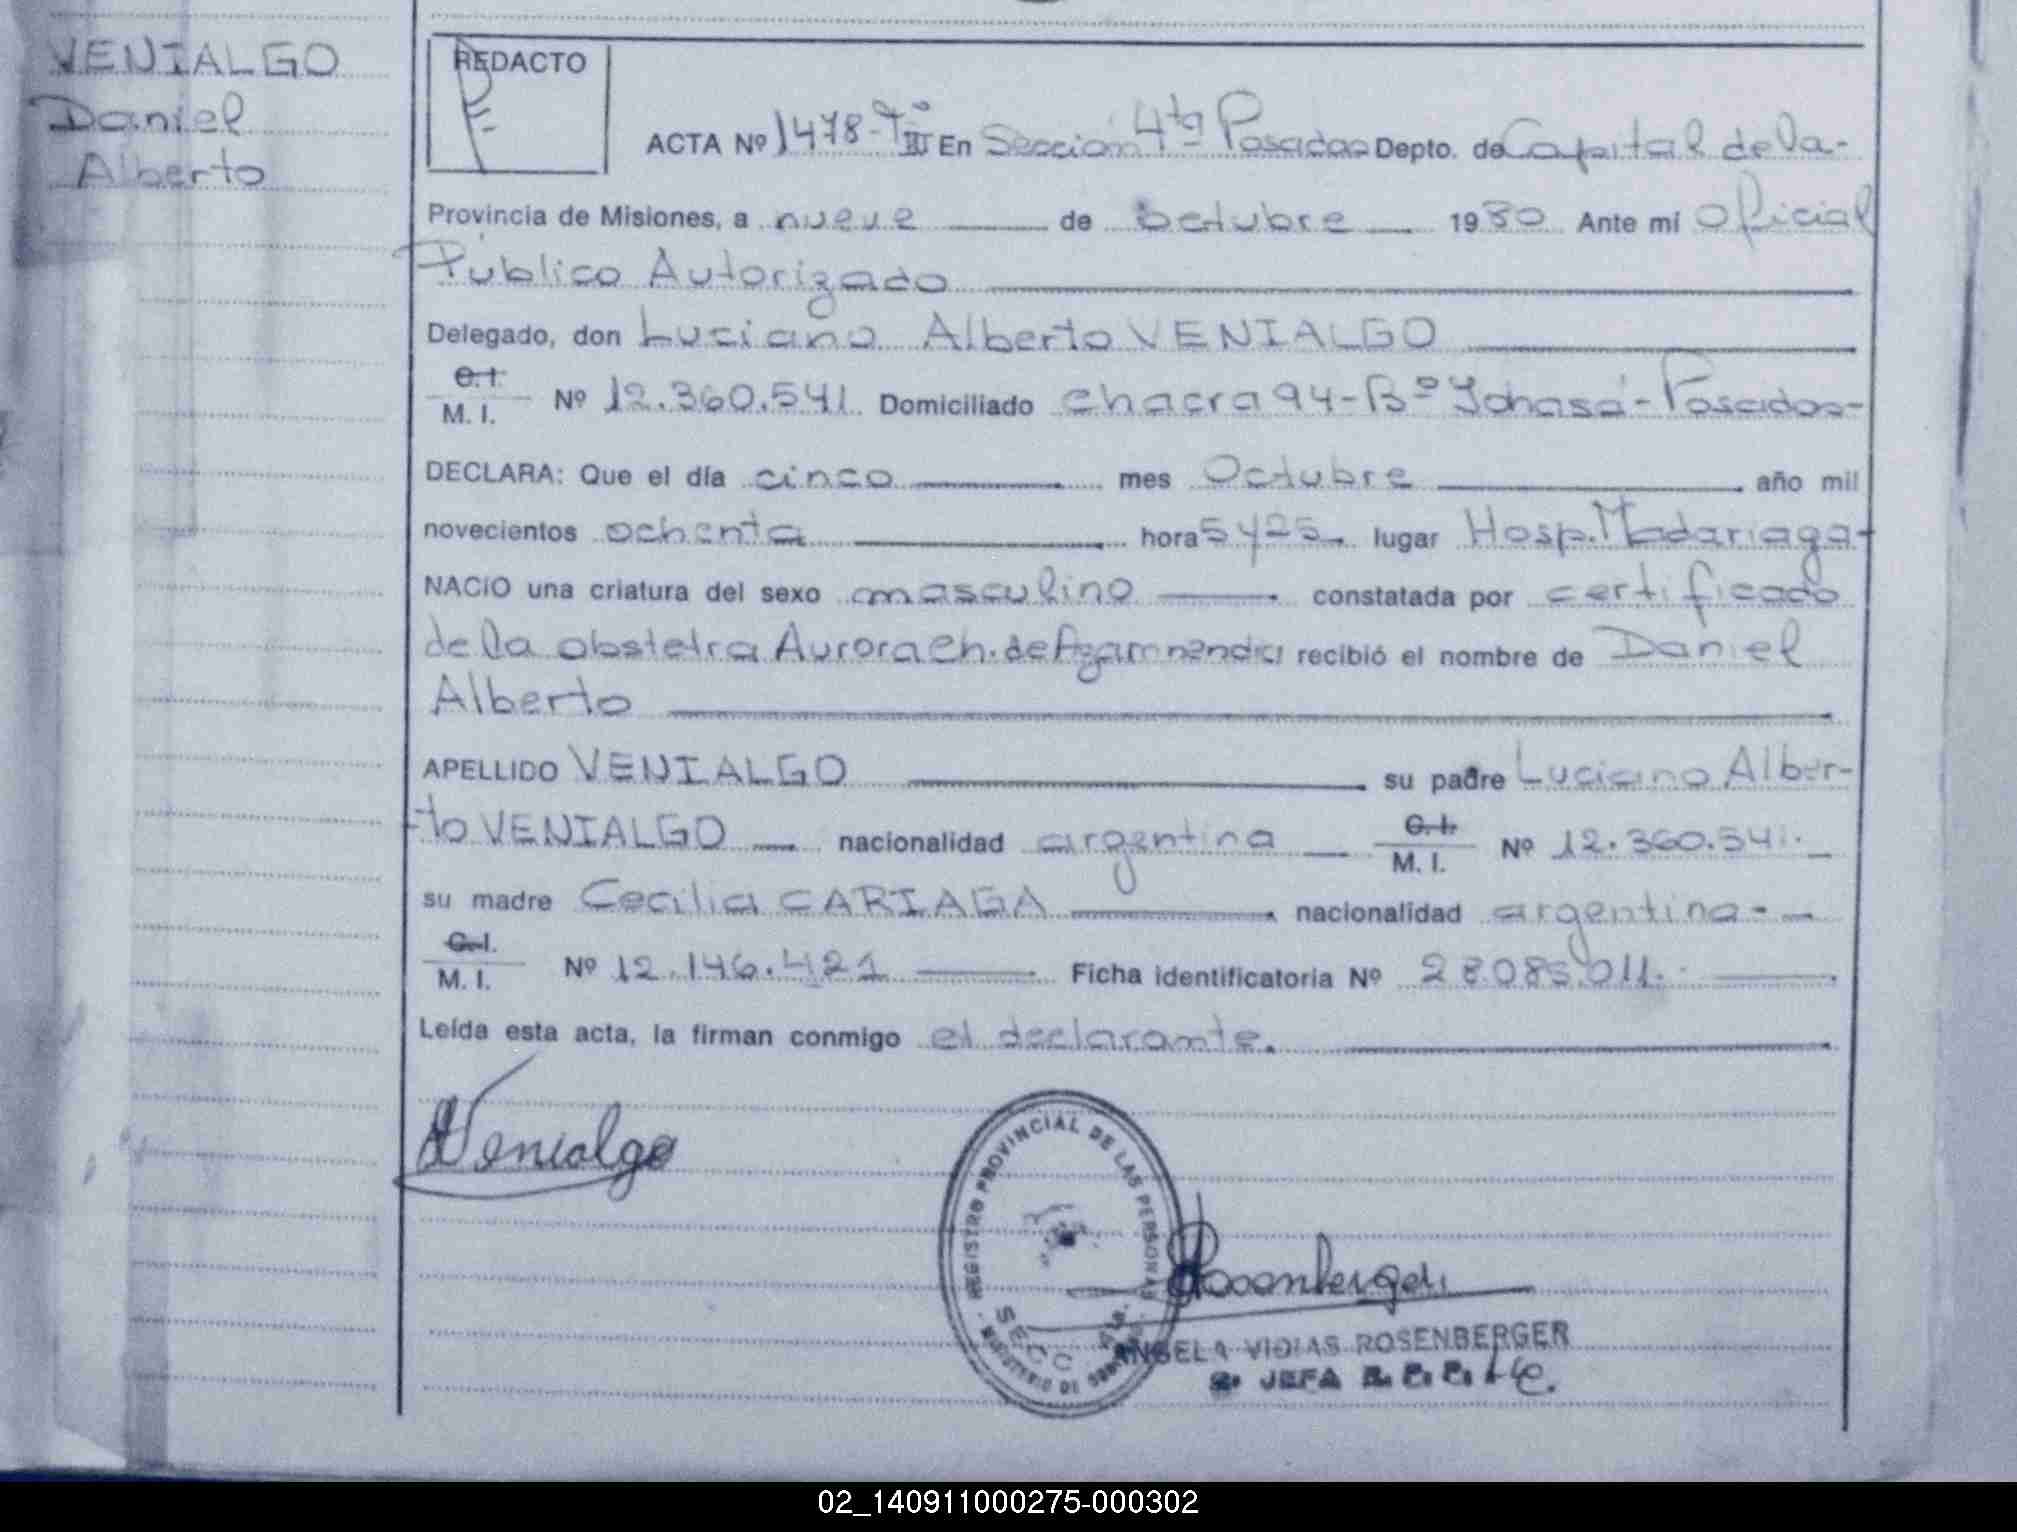 VENIALGO
Daniel
Alberto
REDACTO
ACTA Nº 1478-Tº III En Sección 4ta Posadas Depto. de Capital de la-
Provincia de Misiones, a nueve de octubre 1980 Ante mí Oficial
Público Autorizado
Delegado, don Luciano Alberto VENIALGO
C.I.
M. I. Nº 12.360.541 Domiciliado chacra 94-Bº Yohasá-Posadas-
DECLARA: Que el día cinco mes Octubre año mil
novecientos ochenta hora 5 y 25 lugar Hosp. Madariaga-
NACIO una criatura del sexo masculino constatada por certificado
de la obstetra Aurora Ch. de recibió el nombre de Daniel
Alberto
APELLIDO VENIALGO su padre Luciano Alber-
to VENIALGO nacionalidad argentina C.I.
M. I. Nº 12.360.541.
su madre Cecilia CARIAGA nacionalidad argentina-
C.I.
M. I. Nº 12.146.421 Ficha identificatoria Nº 28.085.011.
Leída esta acta, la firman conmigo el declarante.
Venialgo
REGISTRO PROVINCIAL DE LAS PERSONAS
MINISTERIO DE GOBIERNO
SECC. 4ta.
Rosenberger
ANGELA VIDIAS ROSENBERGER
JEFA
02_140911000275-000302